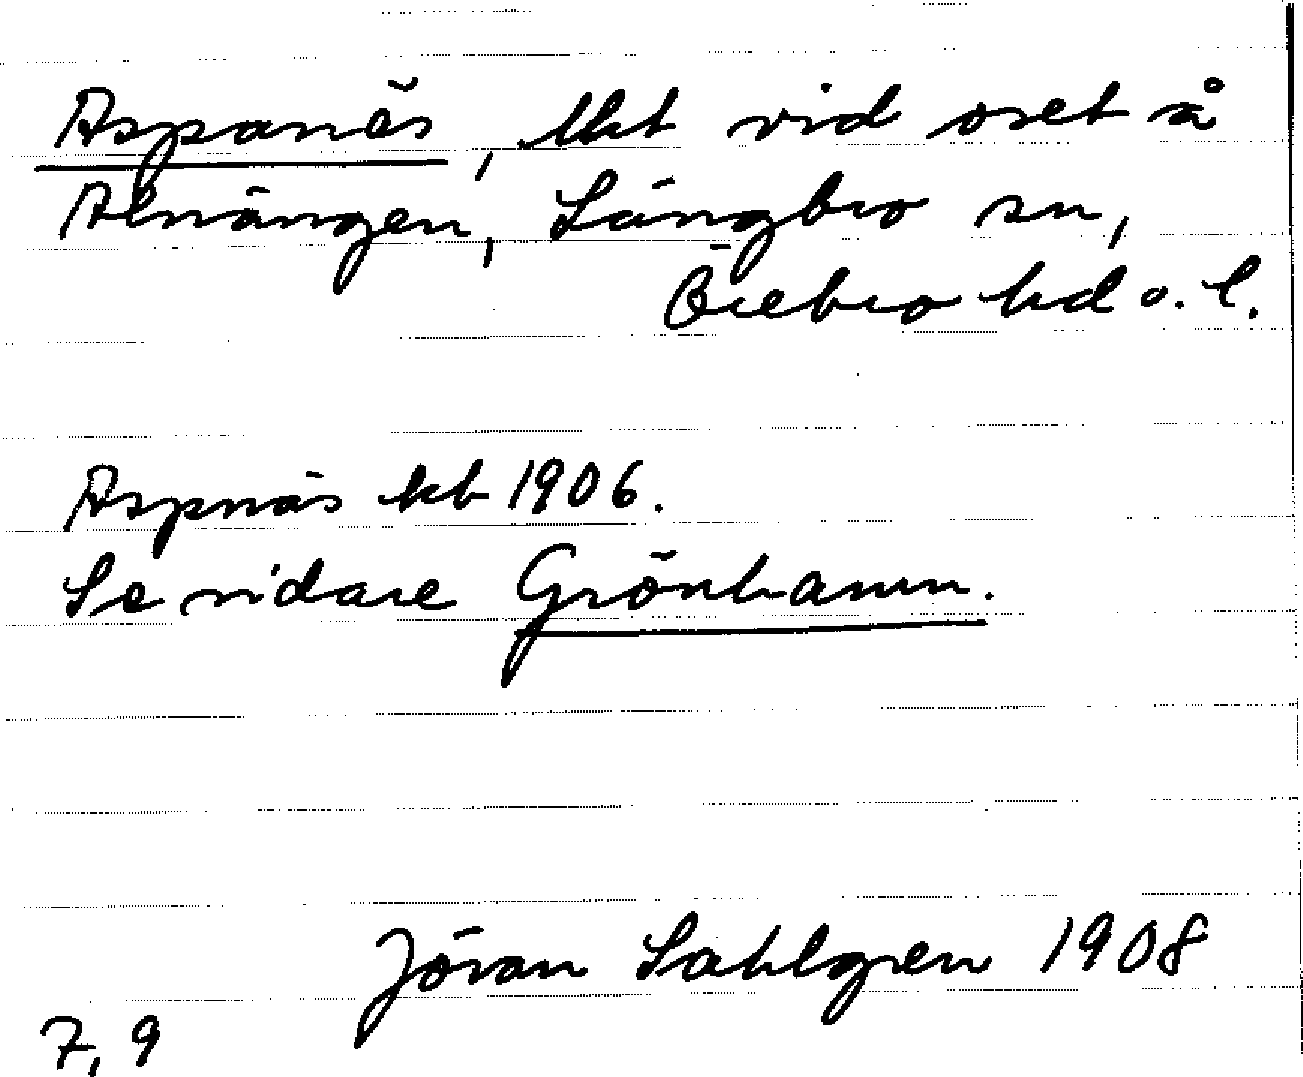 Aspanäs, lht vid oset å
Alnängen, Längbro sn,
Örebro hd o. l.
Aspnäs kb 1906.
Se vidare Grönhamn.
Jöran Sahlgren 1908
7, 9